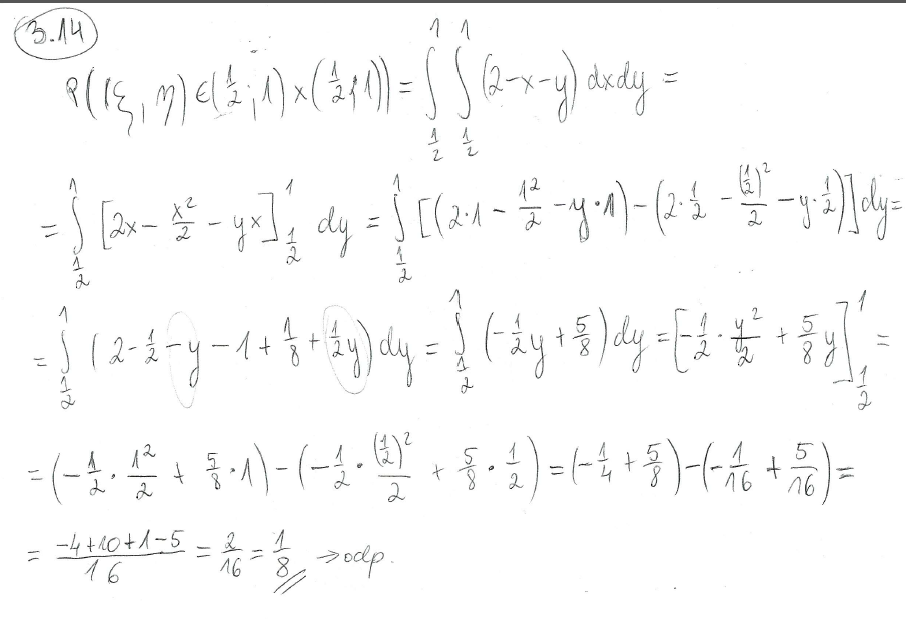 3.14
P((ξ, η) ∈ (1/2; 1) × (1/2; 1)) = ∫_{1/2}^{1} ∫_{1/2}^{1} (2-x-y) dxdy =
= ∫_{1/2}^{1} [2x - x²/2 - yx]_{1/2}^{1} dy = ∫_{1/2}^{1} [(2·1 - 1²/2 - y·1) - (2·1/2 - (1/2)²/2 - y·1/2)] dy =
= ∫_{1/2}^{1} (2 - 1/2 - y - 1 + 1/8 + 1/2y) dy = ∫_{1/2}^{1} (-1/2y + 5/8) dy = [-1/2 · y²/2 + 5/8 y]_{1/2}^{1} =
= (-1/2 · 1²/2 + 5/8 · 1) - (-1/2 · (1/2)²/2 + 5/8 · 1/2) = (-1/4 + 5/8) - (-1/16 + 5/16) =
= (-4+10+1-5)/16 = 2/16 = 1/8 → odp.